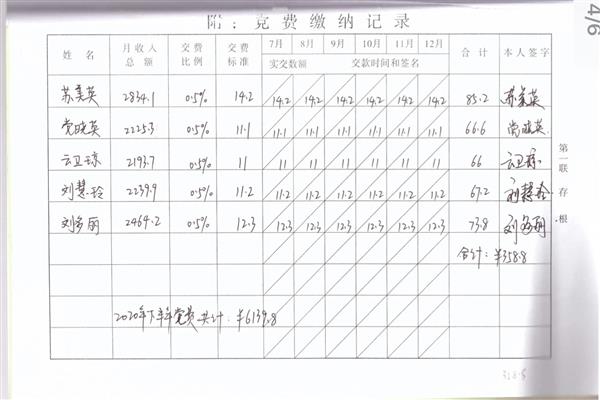 附：党费缴纳记录
4/6
姓名 月收入总额 交费比例 交费标准 7月 8月 9月 10月 11月 12月 合计 本人签字
实交数额 交款时间和签名
苏美英 2834.1 0.5% 14.2 14.2 14.2 14.2 14.2 14.2 14.2 85.2 苏美英
党晓英 2225.3 0.5% 11.1 11.1 11.1 11.1 11.1 11.1 11.1 66.6 党晓英
云卫琼 2193.7 0.5% 11 11 11 11 11 11 11 66 云卫琼
刘慧玲 2239.9 0.5% 11.2 11.2 11.2 11.2 11.2 11.2 11.2 67.2 刘慧玲
刘多丽 2464.2 0.5% 12.3 12.3 12.3 12.3 12.3 12.3 12.3 73.8 刘多丽
合计：¥358.8
2020年下半年党费共计：¥6139.8
第一联存根